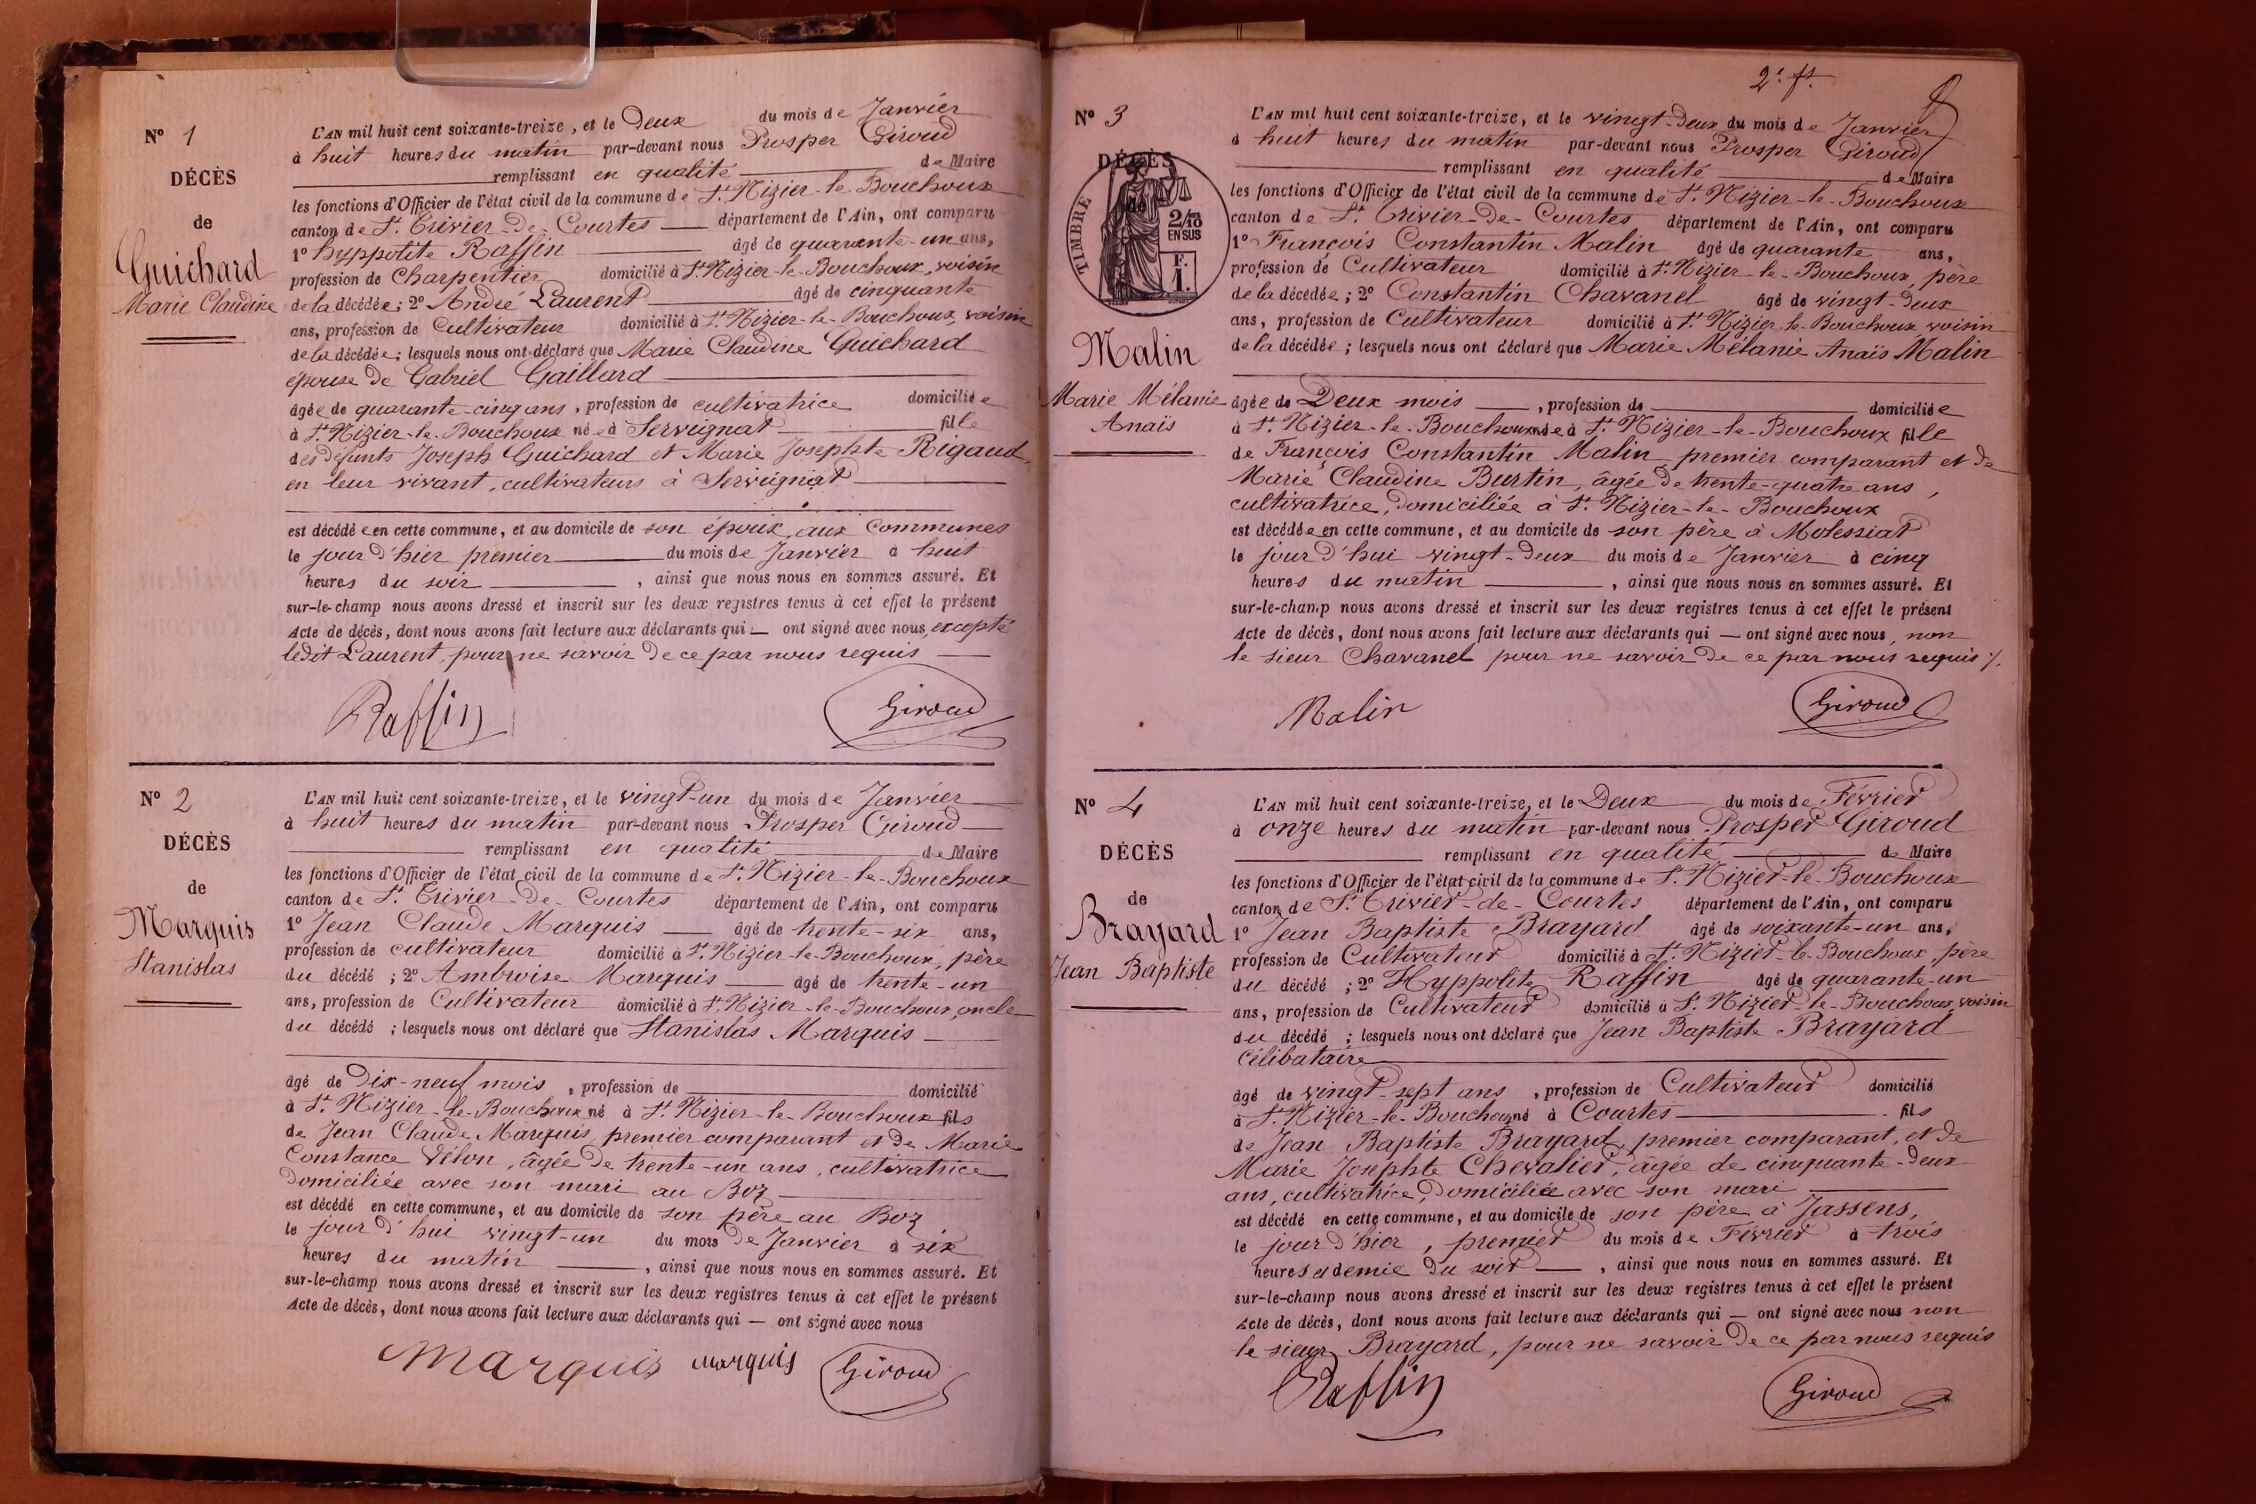 Nº 1
DÉCÈS
de
Guichard
Marie Claudine
L'AN mil huit cent soixante-treize, et le Deux du mois de Janvier
à huit heures du matin par-devant nous Prosper Giroud
remplissant en qualité de Maire
les fonctions d'Officier de l'état civil de la commune de St. Nizier-le-Bouchoux
canton de St. Trivier-De-Courtes département de l'Ain, ont comparu
1º hyppolite Raffin âgé de quarante-un ans,
profession de Charpentier domicilié à St. Nizier-le-Bouchoux, voisin
de la décédée; 2º André Laurent âgé de cinquante
ans, profession de Cultivateur domicilié à St. Nizier-le-Bouchoux, voisin
de la décédée; lesquels nous ont déclaré que Marie Claudine Guichard
épouse de Gabriel Gaillard
âgée de quarante-cinq ans, profession de cultivatrice domiciliée
à St. Nizier-le-Bouchoux née à Servignat fille
des défunts Joseph Guichard et Marie Josephte Rigaud,
en leur vivant, cultivateurs à Servignat
est décédée en cette commune, et au domicile de son époux, aux Communes
le jour d'hier premier du mois de Janvier à huit
heures du soir, ainsi que nous nous en sommes assuré. Et
sur-le-champ nous avons dressé et inscrit sur les deux registres tenus à cet effet le présent
Acte de décès, dont nous avons fait lecture aux déclarants qui — ont signé avec nous, excepté
ledit Laurent, pour ne savoir de ce par nous requis
Raffin Giroud
Nº 2
DÉCÈS
de
Marquis
Stanislas
L'AN mil huit cent soixante-treize, et le vingt-un du mois de Janvier
à huit heures du matin par-devant nous Prosper Giroud
remplissant en qualité de Maire
les fonctions d'Officier de l'état civil de la commune de St. Nizier-le-Bouchoux
canton de St. Trivier-De-Courtes département de l'Ain, ont comparu
1º Jean Claude Marquis âgé de trente-six ans,
profession de cultivateur domicilié à St. Nizier-le-Bouchoux, père
du décédé; 2º Ambroise Marquis âgé de trente-un
ans, profession de Cultivateur domicilié à St. Nizier-le-Bouchoux, oncle
du décédé; lesquels nous ont déclaré que Stanislas Marquis
âgé de Dix-neuf mois, profession de domicilié
à St. Nizier-le-Bouchoux né à St. Nizier-le-Bouchoux fils
de Jean Claude Marquis, premier comparant et de Marie
Constance Vélon, âgée de trente-un ans, cultivatrice
Domiciliée avec son mari au Boz
est décédé en cette commune, et au domicile de son père au Boz
le jour d'hui vingt-un du mois de Janvier à six
heures du matin, ainsi que nous nous en sommes assuré. Et
sur-le-champ nous avons dressé et inscrit sur les deux registres tenus à cet effet le présent
Acte de décès, dont nous avons fait lecture aux déclarants qui — ont signé avec nous
Marquis Marquis Giroud
2e. ft.
Nº 3
DÉCÈS
de
TIMBRE
2/10
EN SUS
F.
1.
Malin
Marie Mélanie
Anaïs
L'AN mil huit cent soixante-treize, et le vingt-Deux du mois de Janvier
à huit heures du matin par-devant nous Prosper Giroud
remplissant en qualité de Maire
les fonctions d'Officier de l'état civil de la commune de St. Nizier-le-Bouchoux
canton de St. Trivier-De-Courtes département de l'Ain, ont comparu
1º François Constantin Malin âgé de quarante ans,
profession de Cultivateur domicilié à St. Nizier-le-Bouchoux, père
de la décédée; 2º Constantin Chavanel âgé de vingt-Deux
ans, profession de Cultivateur domicilié à St. Nizier-le-Bouchoux voisin
de la décédée; lesquels nous ont déclaré que Marie Mélanie Anaïs Malin
âgée de Deux mois, profession de domiciliée
à St. Nizier-le-Bouchoux née à St. Nizier-le-Bouchoux fille
de François Constantin Malin, premier comparant et de
Marie Claudine Burtin, âgée de trente-quatre ans,
cultivatrice, domiciliée à St. Nizier-le-Bouchoux
est décédée en cette commune, et au domicile de son père à Molessiat
le jour d'hui vingt-Deux du mois de Janvier à cinq
heures du matin, ainsi que nous nous en sommes assuré. Et
sur-le-champ nous avons dressé et inscrit sur les deux registres tenus à cet effet le présent
Acte de décès, dont nous avons fait lecture aux déclarants qui — ont signé avec nous, non
le sieur Chavanel pour ne savoir de ce par nous requis ./.
Malin Giroud
Nº 4
DÉCÈS
de
Brayard
Jean Baptiste
L'AN mil huit cent soixante-treize, et le Deux du mois de Février
à onze heures du matin par-devant nous Prosper Giroud
remplissant en qualité de Maire
les fonctions d'Officier de l'état civil de la commune de St. Nizier-le-Bouchoux
canton de St. Trivier-de-Courtes département de l'Ain, ont comparu
1º Jean Baptiste Brayard âgé de soixante-un ans,
profession de Cultivateur domicilié à St. Nizier-le-Bouchoux, père
du décédé; 2º Hyppolite Raffin âgé de quarante-un
ans, profession de Cultivateur domicilié à St. Nizier-le-Bouchoux, voisin
du décédé; lesquels nous ont déclaré que Jean Baptiste Brayard
célibataire
âgé de vingt-sept ans, profession de Cultivateur domicilié
à St. Nizier-le-Bouchoux né à Courtes fils
de Jean Baptiste Brayard, premier comparant, et de
Marie Josephte Chevalier, âgée de cinquante-deux
ans, cultivatrice, Domiciliée avec son mari
est décédé en cette commune, et au domicile de son père à Jassens,
le jour d'hier, premier du mois de Février à trois
heures et demie du soir, ainsi que nous nous en sommes assuré. Et
sur-le-champ nous avons dressé et inscrit sur les deux registres tenus à cet effet le présent
Acte de décès, dont nous avons fait lecture aux déclarants qui — ont signé avec nous non
le sieur Brayard, pour ne savoir de ce par nous requis
Raffin Giroud